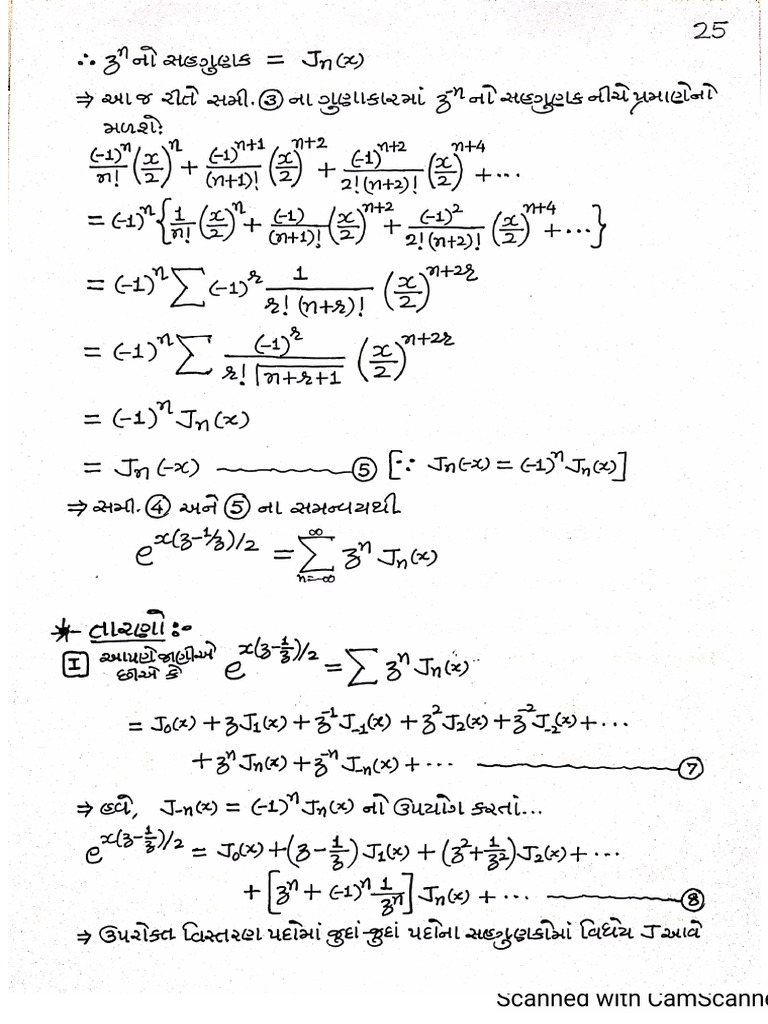 25
∴ zⁿ નો સહગુણક = Jₙ(x)
⇒ આ જ રીતે સમી. ③ ના ગુણાકારમાં z⁻ⁿ નો સહગુણક નીચે પ્રમાણેનો
મળશે:
(-1)ⁿ/n! (x/2)ⁿ + (-1)ⁿ⁺¹/(n+1)! (x/2)ⁿ⁺² + (-1)ⁿ⁺²/2!(n+2)! (x/2)ⁿ⁺⁴ + ...
= (-1)ⁿ {1/n! (x/2)ⁿ + (-1)/(n+1)! (x/2)ⁿ⁺² + (-1)²/2!(n+2)! (x/2)ⁿ⁺⁴ + ...}
= (-1)ⁿ ∑ (-1)ʳ 1/r!(n+r)! (x/2)ⁿ⁺²ʳ
= (-1)ⁿ ∑ (-1)ʳ/r!Γ(n+r+1) (x/2)ⁿ⁺²ʳ
= (-1)ⁿ Jₙ(x)
= Jₙ(-x) ——— ⑤ [∵ Jₙ(-x) = (-1)ⁿ Jₙ(x)]
⇒ સમી. ④ અને ⑤ ના સમન્વયથી
e^{x(z-1/z)/2} = ∑_{n=-∞}^{∞} zⁿ Jₙ(x)
* તારણો :-
[I] આપણે જાણીએ છીએ કે e^{x(z-1/z)/2} = ∑ zⁿ Jₙ(x)
= J₀(x) + zJ₁(x) + z⁻¹J₋₁(x) + z²J₂(x) + z⁻²J₋₂(x) + ...
+ zⁿJₙ(x) + z⁻ⁿJ₋ₙ(x) + ... ——— ⑦
⇒ હવે, J₋ₙ(x) = (-1)ⁿ Jₙ(x) નો ઉપયોગ કરતાં...
e^{x(z-1/z)/2} = J₀(x) + (z - 1/z) J₁(x) + (z² + 1/z²) J₂(x) + ...
+ [zⁿ + (-1)ⁿ 1/zⁿ] Jₙ(x) + ... ——— ⑧
⇒ ઉપરોક્ત વિસ્તરણ પદોમાં જુદાં-જુદાં પદોના સહગુણકોમાં વિધેય J આવે
Scanned with CamScanne